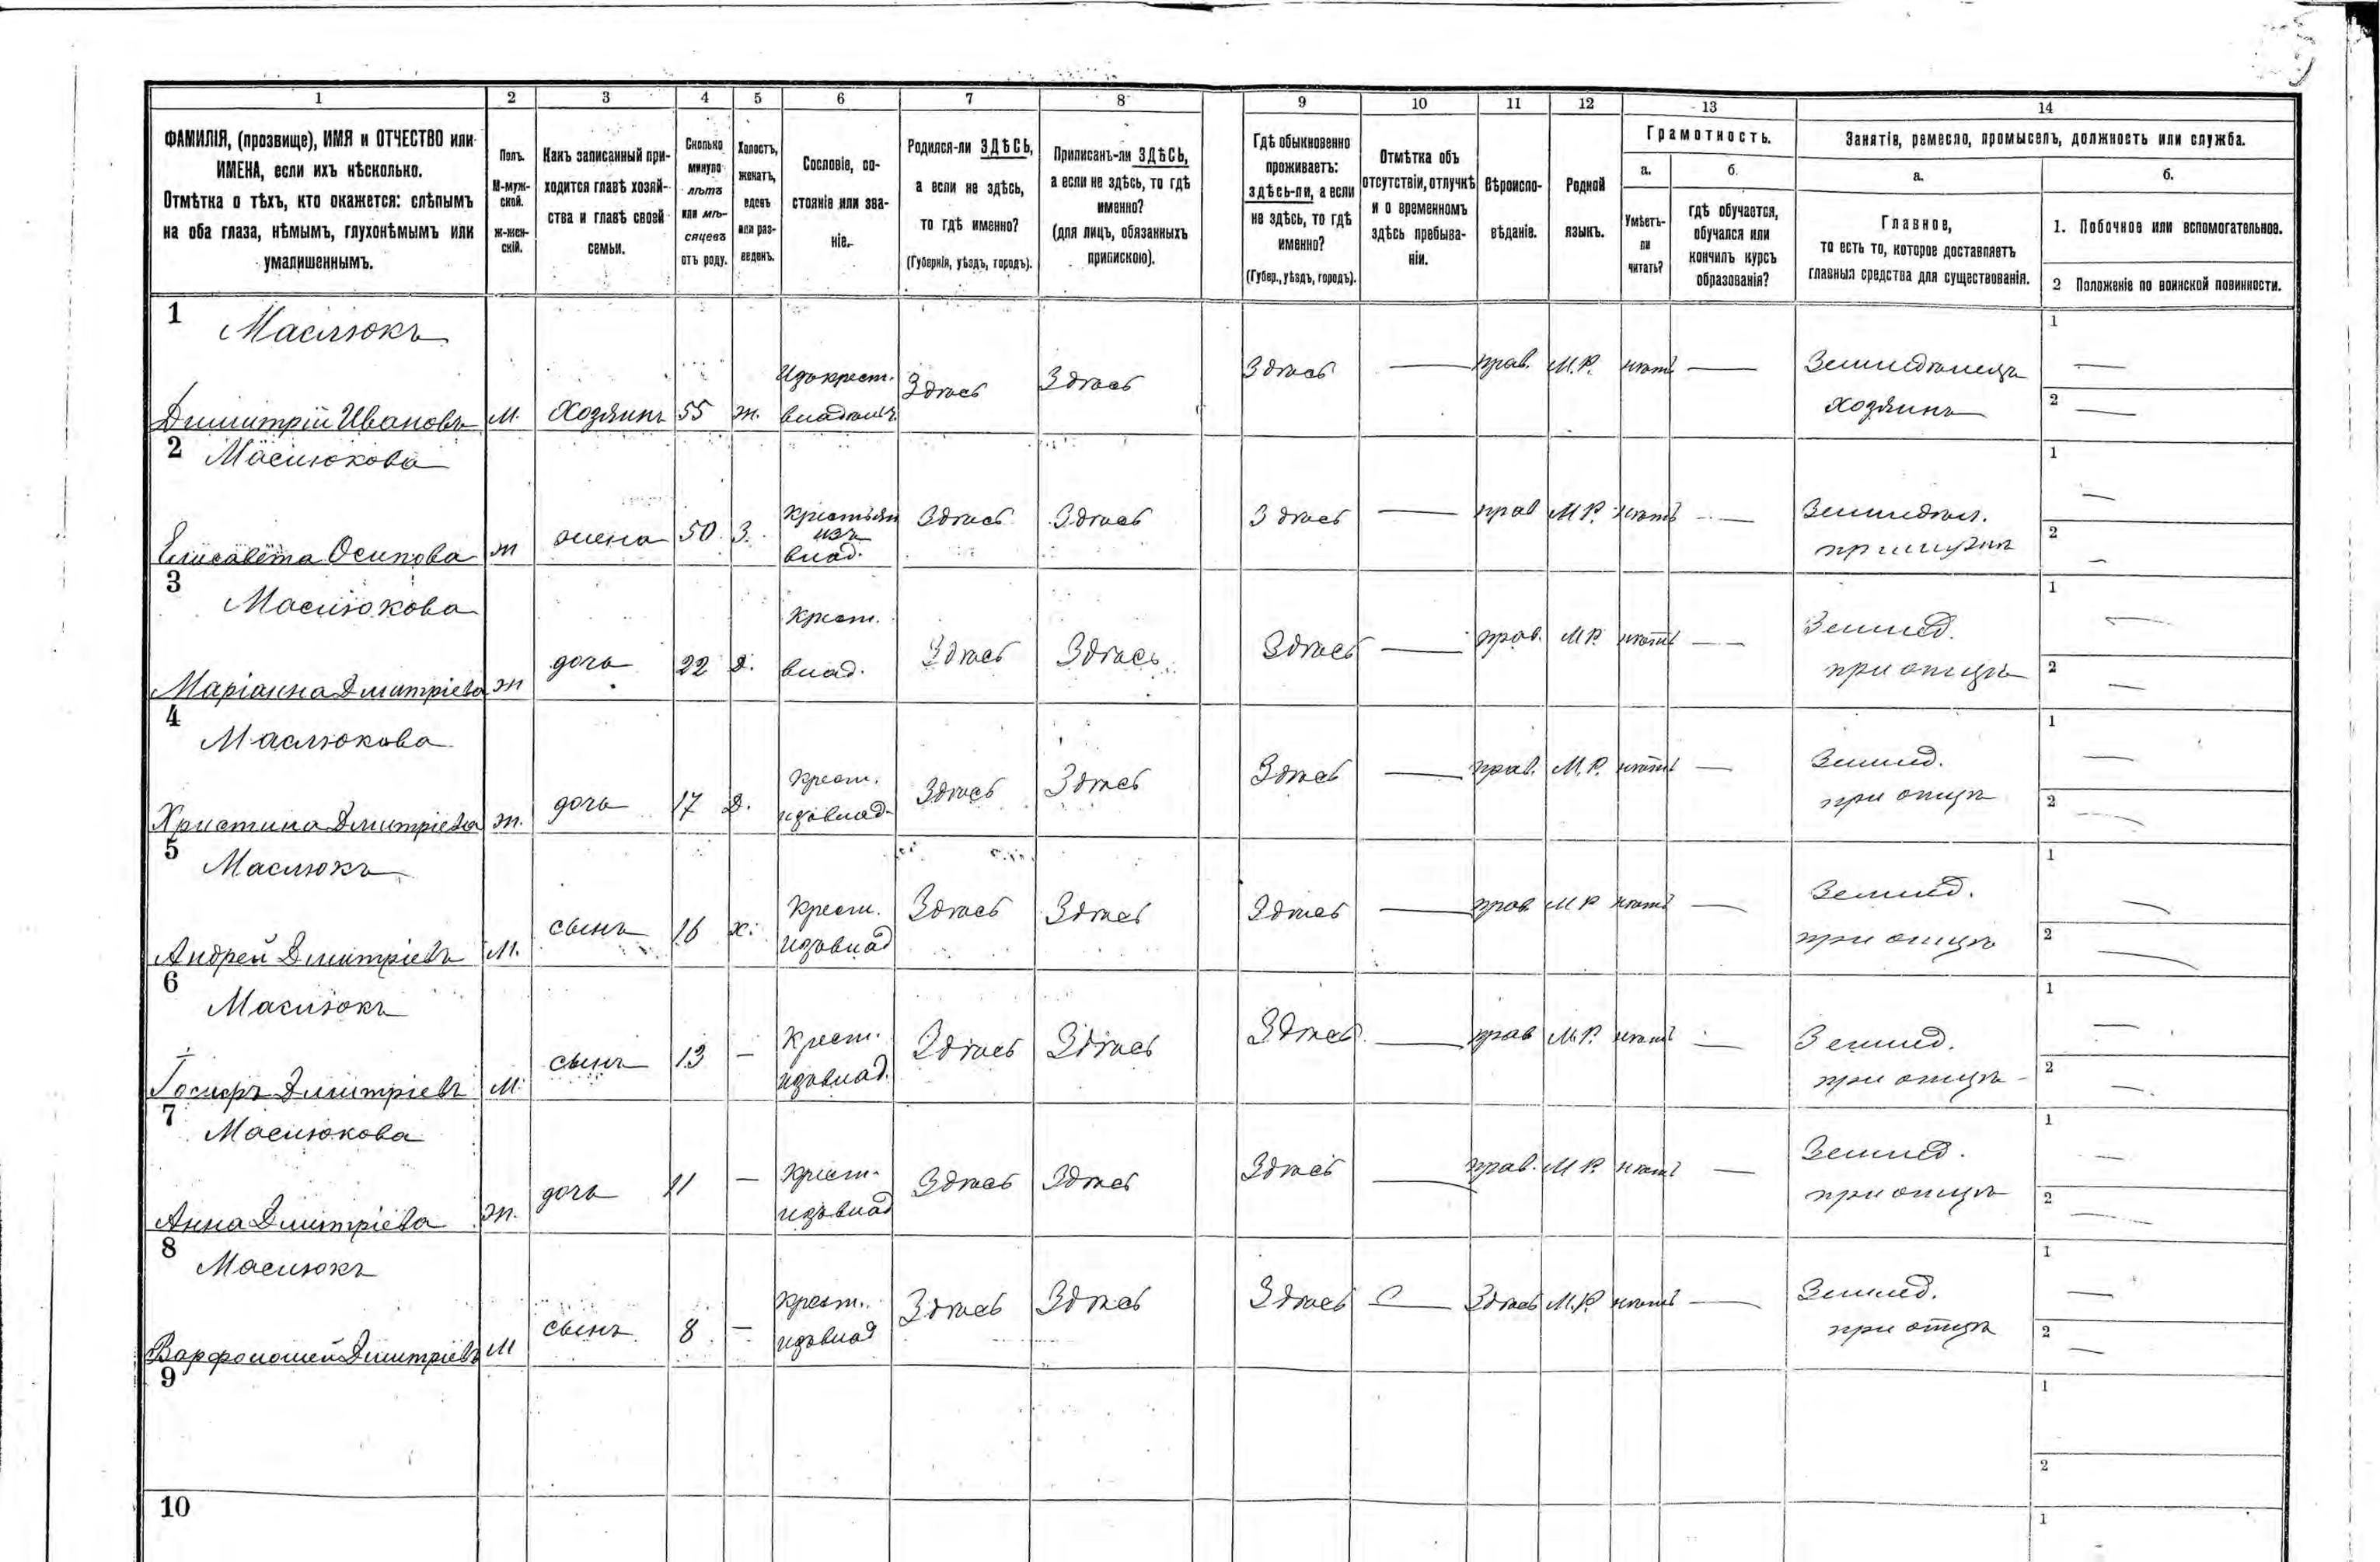 1 2 3 4 5 6 7 8 9 10 11 12 13 14
ФАМИЛІЯ, (прозвище), ИМЯ и ОТЧЕСТВО или
ИМЕНА, если ихъ нѣсколько.
Отмѣтка о тѣхъ, кто окажется: слѣпымъ
на оба глаза, нѣмымъ, глухонѣмымъ или
умалишеннымъ.
Полъ.
М-муж-
ской.
ж-жен-
скій.
Какъ записанный при-
ходится главѣ хозяй-
ства и главѣ своей
семьи.
Сколько
минуло
лѣтъ
или мѣ-
сяцевъ
отъ роду.
Холостъ,
женатъ,
вдовъ
или раз-
веденъ.
Сословіе, со-
стояніе или зва-
ніе.
Родился-ли ЗДѢСЬ,
а если не здѣсь,
то гдѣ именно?
(Губернія, уѣздъ, городъ).
Приписанъ-ли ЗДѢСЬ,
а если не здѣсь, то гдѣ
именно?
(для лицъ, обязанныхъ
припискою).
Гдѣ обыкновенно
проживаетъ:
здѣсь-ли, а если
не здѣсь, то гдѣ
именно?
(Губер., уѣздъ, городъ).
Отмѣтка объ
отсутствіи, отлучкѣ
и о временномъ
здѣсь пребыва-
ніи.
Вѣроиспо-
вѣданіе.
Родной
языкъ.
Грамотность.
а.
Умѣетъ-
ли
читать?
б.
гдѣ обучается,
обучался или
кончилъ курсъ
образованія?
Занятія, ремесло, промыселъ, должность или служба.
а.
Главное,
то есть то, которое доставляетъ
главныя средства для существованія.
б.
1. Побочное или вспомогательное.
2 Положеніе по воинской повинности.
1 Маслюкъ
Димитрій Ивановъ М. Хозяинъ 55 ж.
Изъ крест.
владѣльч
Здѣсь Здѣсь Здѣсь — прав. М.Р. нѣтъ —
Земледѣлецъ
хозяинъ
1 —
2 —
2 Маслюкова
Елисавета Осипова ж жена 50 З.
Крестьян
изъ
влад.
Здѣсь Здѣсь Здѣсь — прав М.Р. нѣтъ —
Земледѣл.
при мужѣ
1 —
2 —
3 Маслюкова
Маріанна Дмитріева ж дочь 22 д.
Крест.
влад.
Здѣсь Здѣсь Здѣсь — прав. М.Р. нѣтъ —
Землед.
при отцѣ
1 —
2 —
4 Маслюкова
Христина Дмитріева ж. дочь 17 д.
Крест.
изъ влад.
Здѣсь Здѣсь Здѣсь — прав. М.Р. нѣтъ —
Землед.
при отцѣ
1 —
2 —
5 Маслюкъ
Андрей Дмитріевъ М. сынъ 16 х.
Крест.
изъ влад
Здѣсь Здѣсь Здѣсь — прав М Р нѣтъ —
Землед.
при отцѣ
1 —
2 —
6 Маслюкъ
Іосифъ Димитріевъ М. сынъ 13 —
Крест.
изъ влад.
Здѣсь Здѣсь Здѣсь — прав М.Р. нѣтъ —
Землед.
при отцѣ
1 —
2 —
7 Маслюкова
Анна Димитріева ж. дочь 11 —
Крест.
изъ влад
Здѣсь Здѣсь Здѣсь — прав. М Р. нѣтъ —
Землед.
при отцѣ
1 —
2 —
8 Маслюкъ
Варфоломей Димитріевъ М сынъ 8 —
Крест.
изъ влад
Здѣсь Здѣсь Здѣсь — Здѣсь М.Р. нѣтъ —
Землед.
при отцѣ
1 —
2 —
9
1
2
10
1